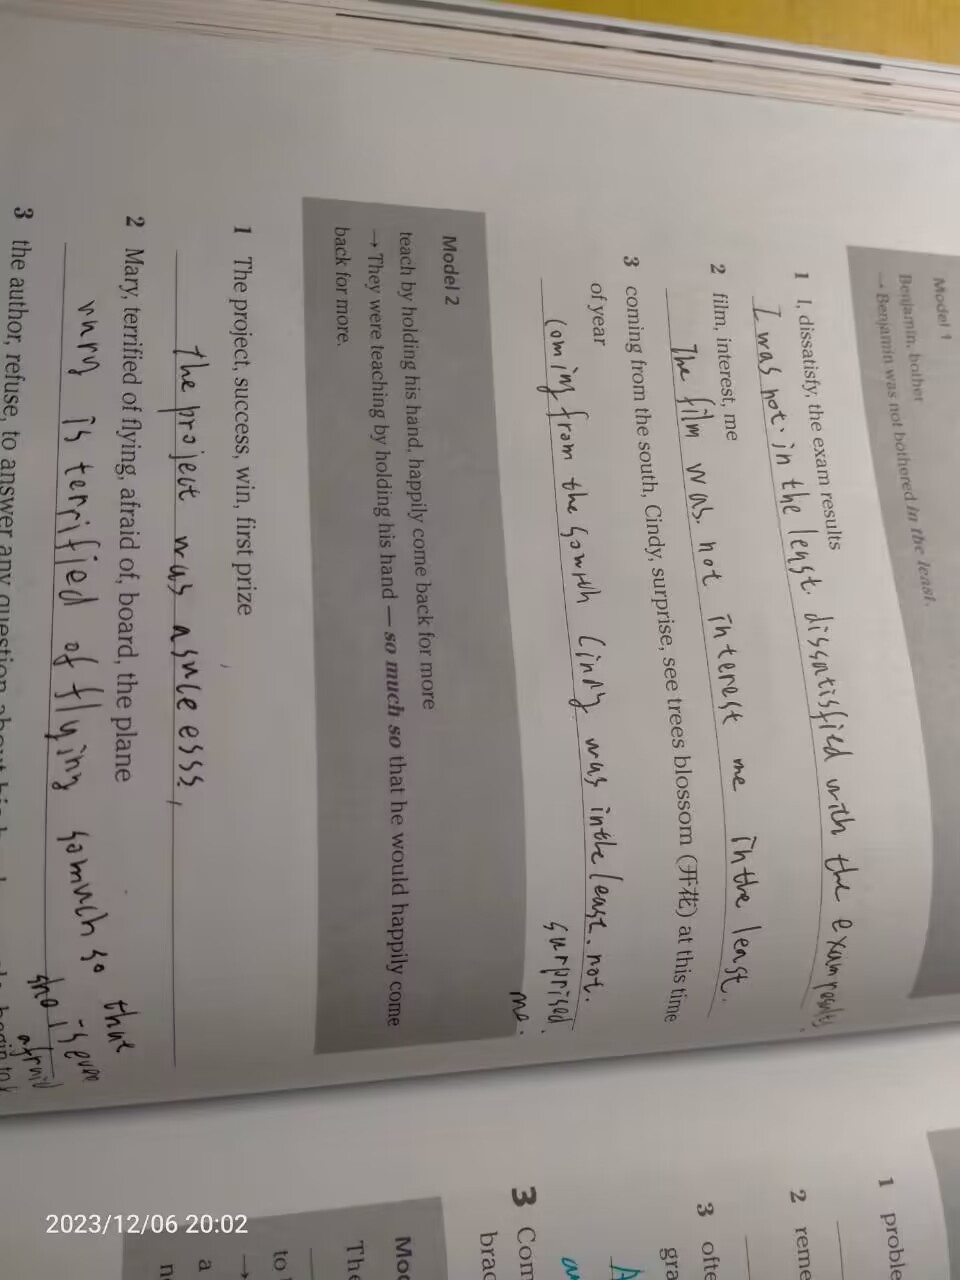 Model 1
Benjamin, bother
→ Benjamin was not bothered in the least.
1 I, dissatisfy, the exam results
I was not in the least dissatisfied with the exam results.
2 film, interest, me
The film was not interest me in the least.
3 coming from the south, Cindy, surprise, see trees blossom (开花) at this time
of year
Coming from the south Cindy was in the least. not.
surprised.
me.
Model 2
teach by holding his hand, happily come back for more
→ They were teaching by holding his hand — so much so that he would happily come
back for more.
1 The project, success, win, first prize
The project was a
2 Mary, terrified of flying, afraid of, board, the plane
is terrified of flying so much so that
she is even
afraid
3 the author, refuse, to answer any question about his
1 proble
2 reme
3 ofte
gra
3 Com
brac
Moc
The
to
→
a
2023/12/06 20:02